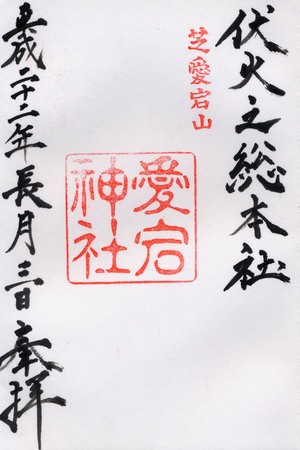 伏火之総本社
芝愛宕山
愛宕
神社
平成二十二年長月三日奉拝